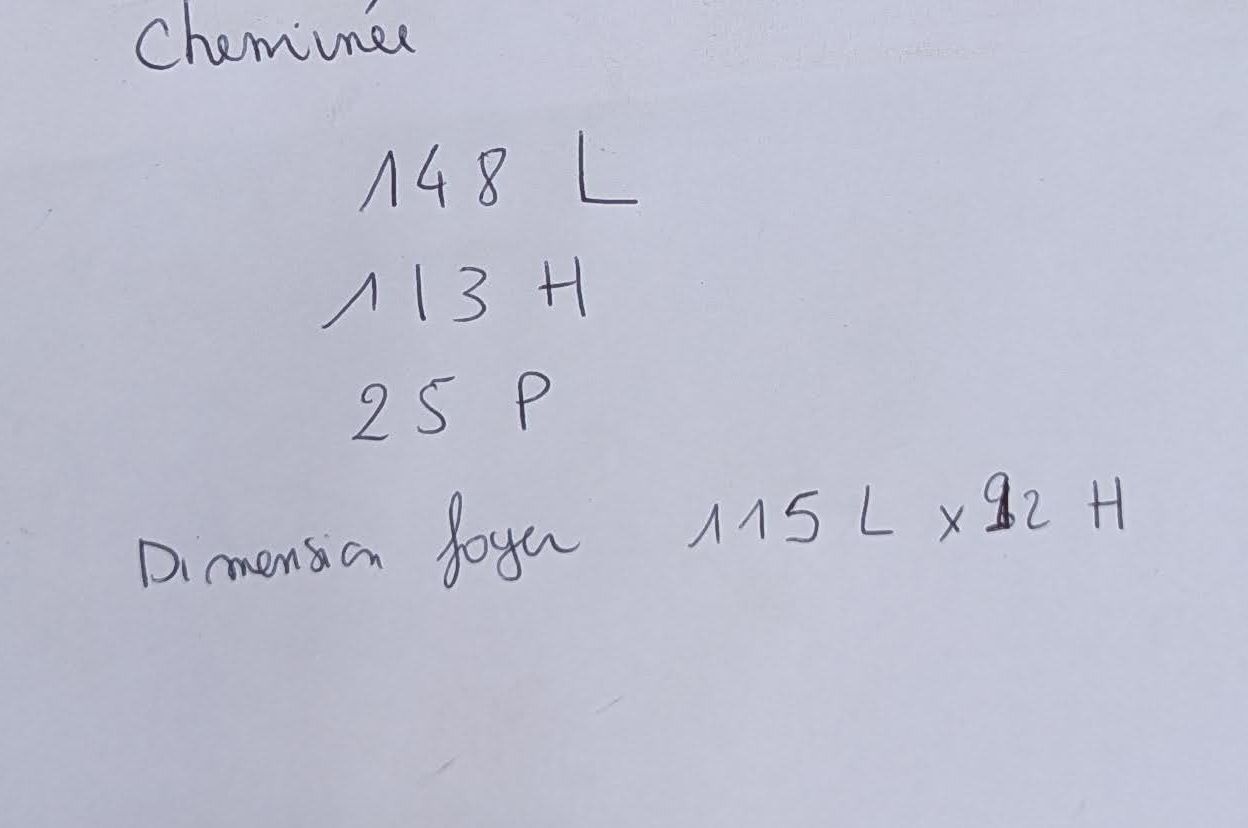 Cheminée
148 L
113 H
25 P
Dimension foyer 115 L x 92 H